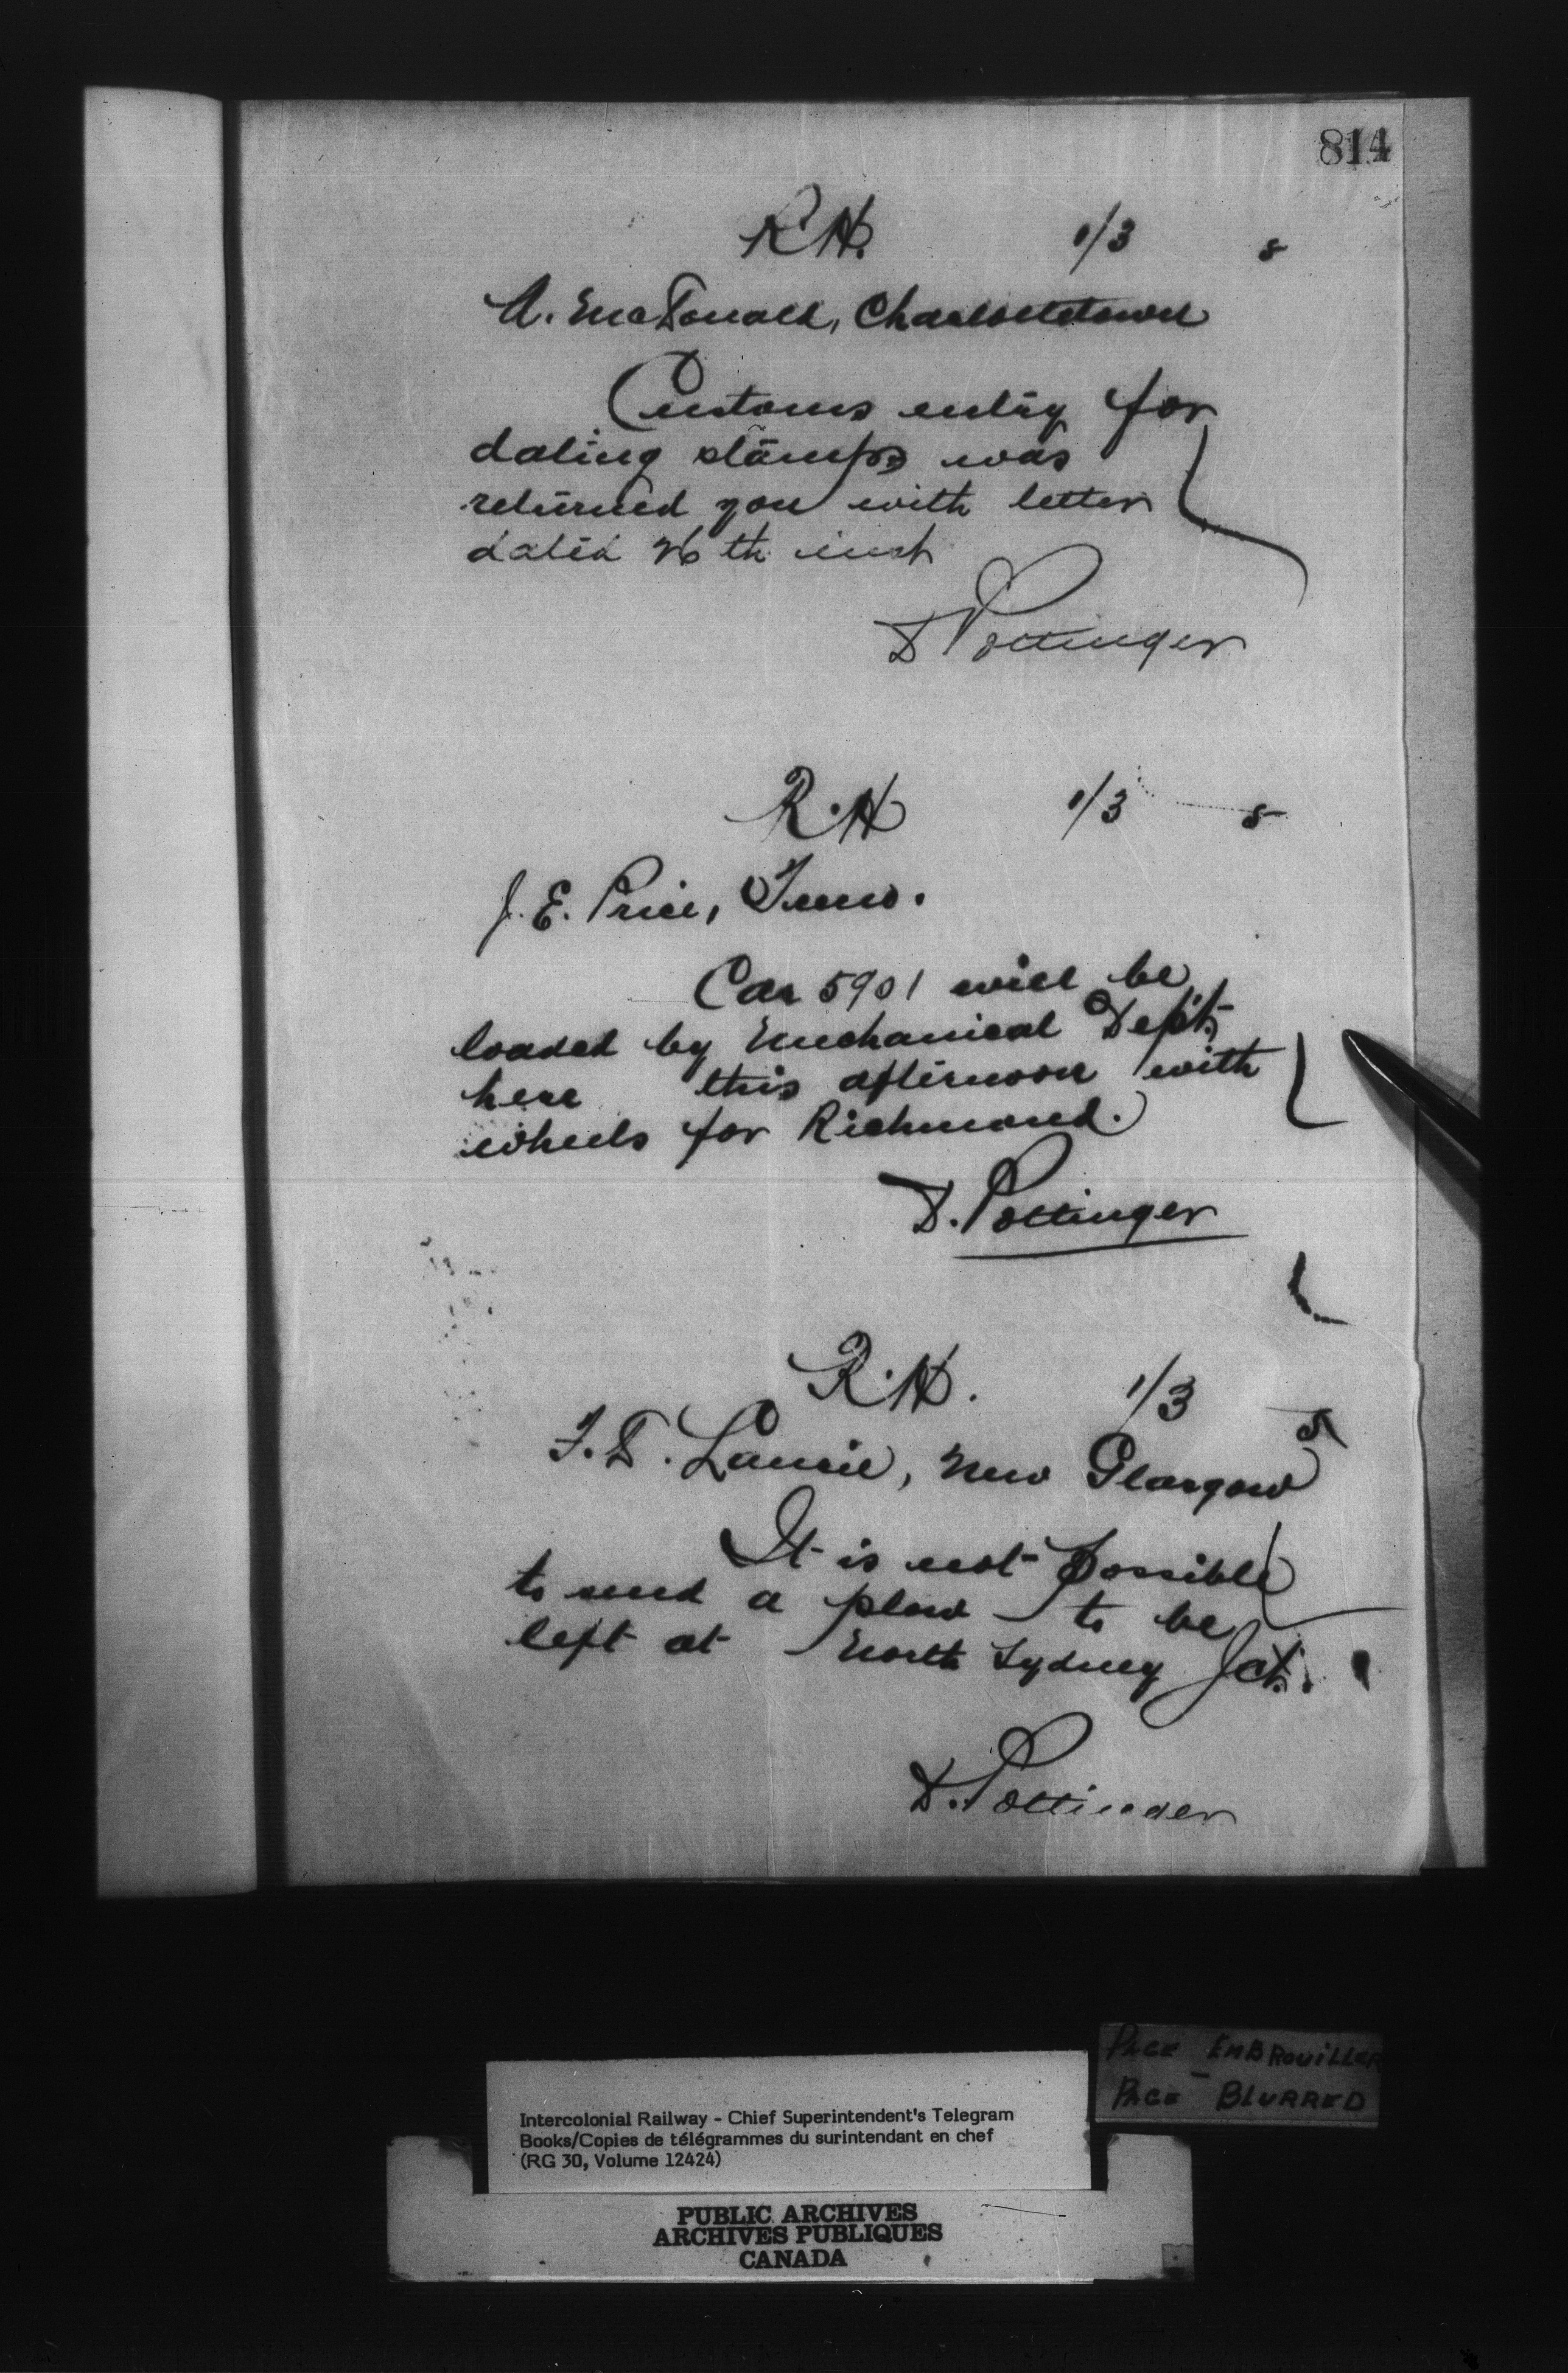 814
R.H. 1/3 s
A. McDonald, Charlottetown
Customs entry for
dating stamps was
returned you with letter
dated 26th inst
D Pottinger
R.H 1/3 s
J. E. Price, Truro.
Car 5901 will be
loaded by Mechanical Dept.
here this afternoon with
wheels for Richmond.
D. Pottinger
R.H. 1/3
F. D. Laurie, New Glasgow
It is not possible
to send a plow to be
left at North Sydney Jct.
D. Pottinger
PAGE EMBROUILLER
PAGE BLURRED
Intercolonial Railway - Chief Superintendent's Telegram
Books/Copies de télégrammes du surintendant en chef
(RG 30, Volume 12424)
PUBLIC ARCHIVES
ARCHIVES PUBLIQUES
CANADA